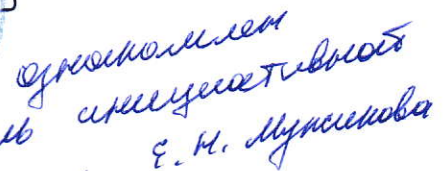 ознакомлен
инициативной
Е. Н. Мужикова